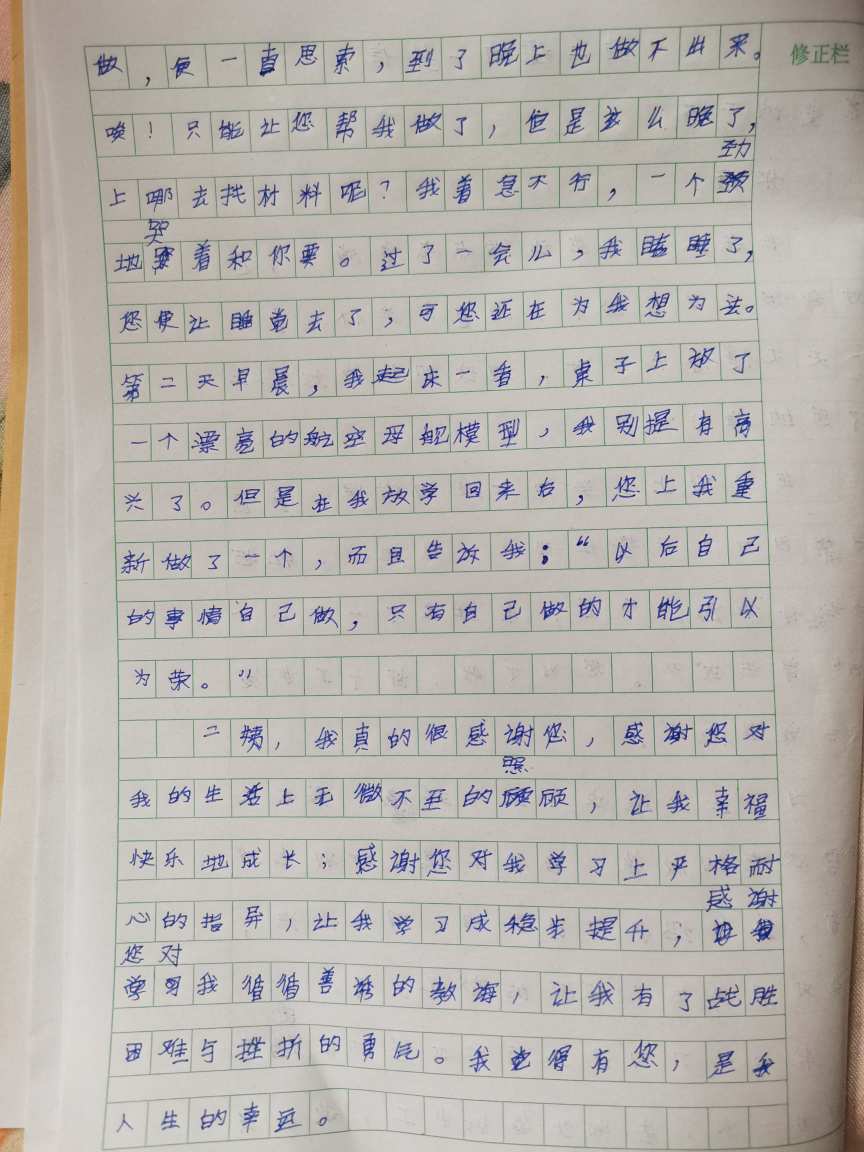 做，便一直思索，到了晚上也做不出来。
修正栏
唉！只能让您帮我做了，但是这么晚了，
上哪去找材料呢？我着急不行，一个劲
地哭着和你要。过了一会儿，我睡睡了，
您便让睡觉去了，可您还在为我想为法。
第二天早晨，我起床一看，桌子上放了
一个漂亮的航空母舰模型，我别提有高
兴了。但是在我放学回来后，您上我重
新做了一个，而且告放我：“以后自己
的事情自己做，只有自己做的才能引以
为荣。”
二姨，我真的很感谢您，感谢您对
我的生活上无微不至的照顾，让我幸福
快乐地成长；感谢您对我学习上严格耐
心的指导，让我学习成稳步提升，感谢
您对我循循善诱的教海，让我有了战胜
困难与挫折的勇气。我觉得有您，是我
人生的幸运。